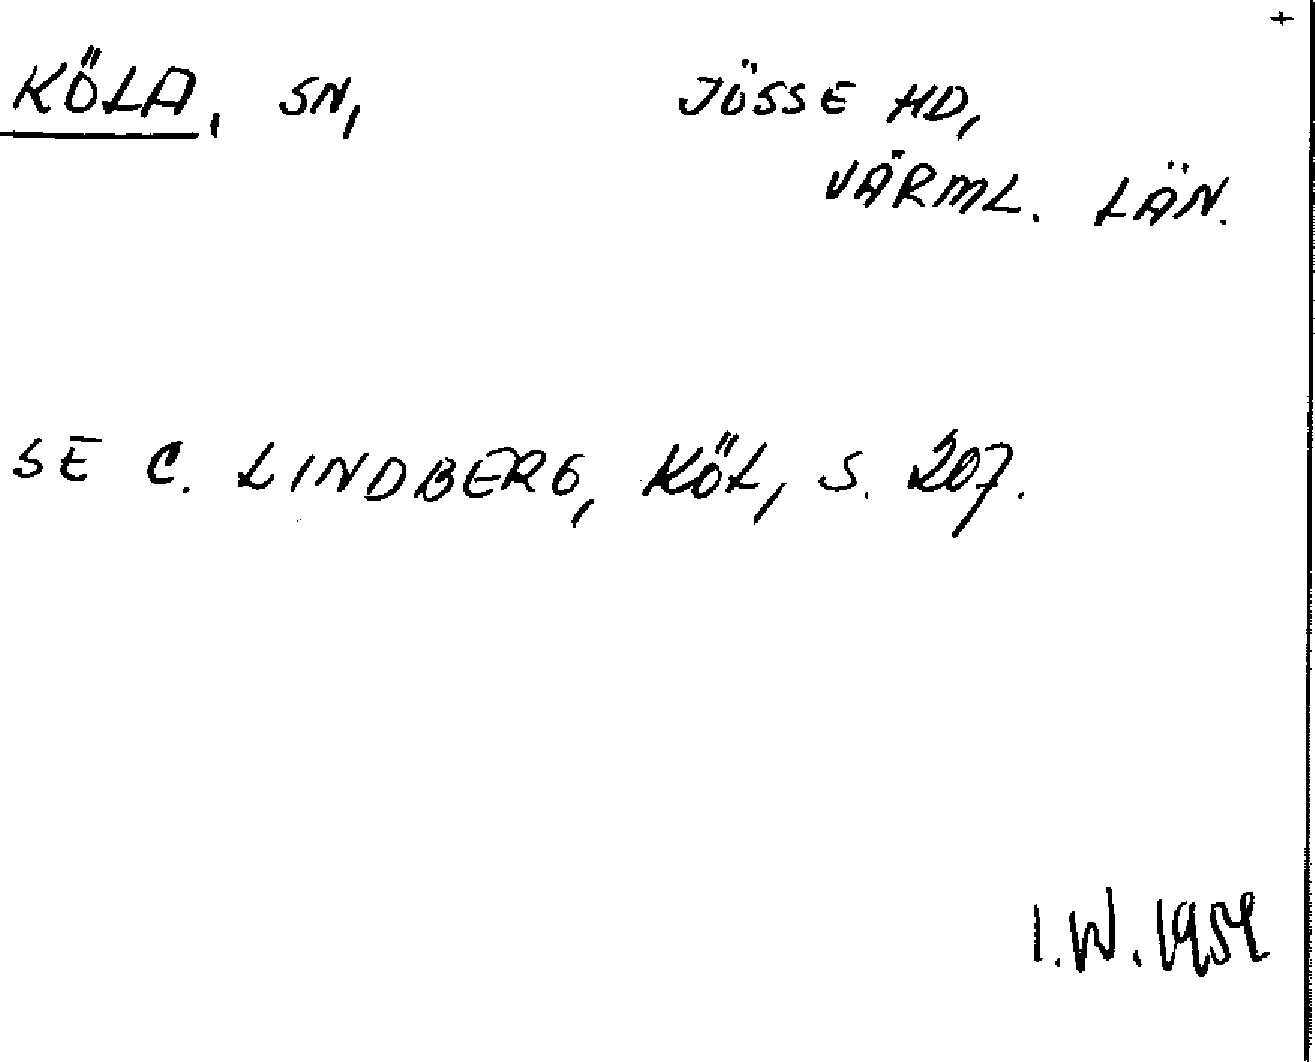 +
KÖLA, SN, JÖSSE HD,
VÄRML. LÄN.
SE C. LINDBERG, KÖL, S. 207.
I.W. 1959